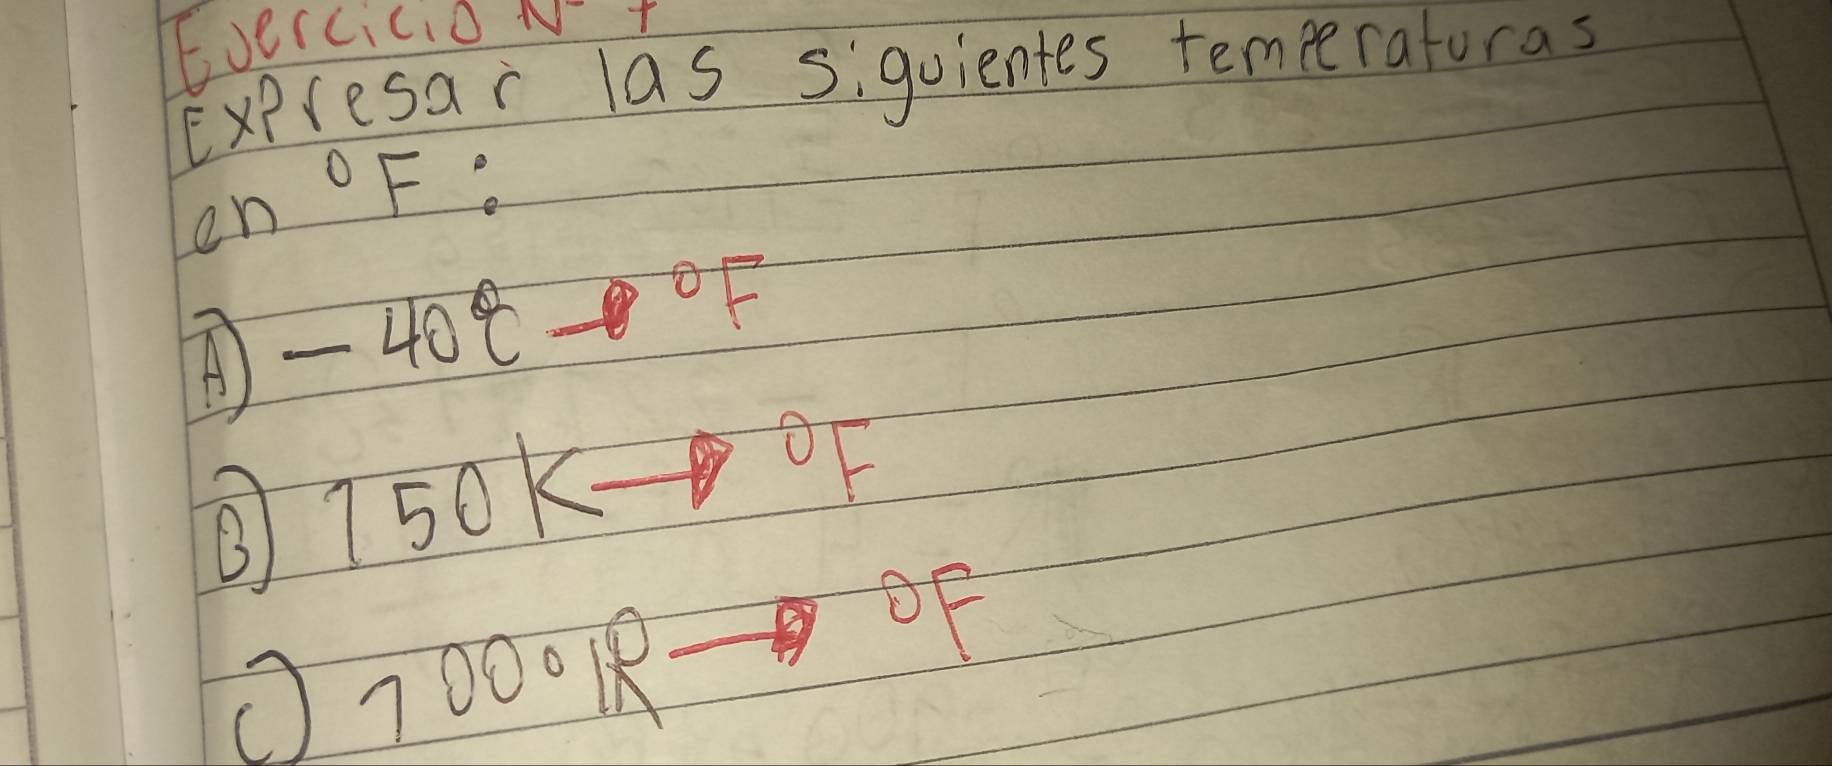 Ejercicio Nº 1
Expresar las siguientes temperaturas
en °F:
A) - 40℃ → °F
B) 150K → °F
C) 100°R → °F